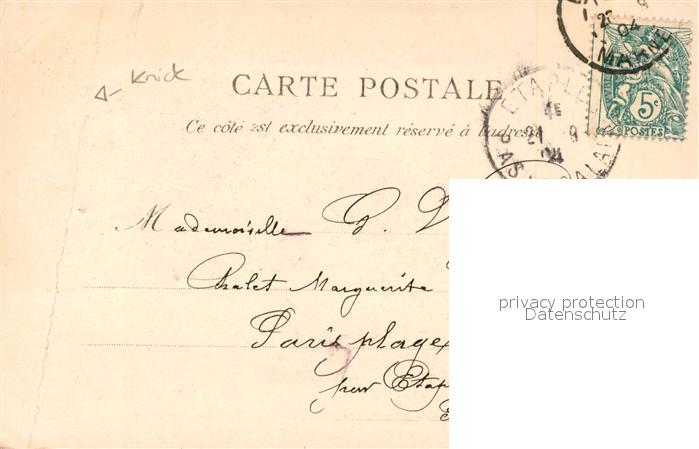 Knick
CARTE POSTALE
Ce côté est exclusivement réservé à l'adresse
MARNE
04
5c
POSTES
ETAPL
4E
21 9
04
PAS
CALAI
Mademoiselle G.
Chalet Marguerite
Paris plage
par Etap
privacy protection
Datenschutz